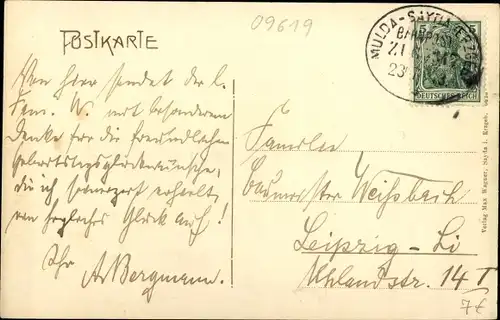 09619
POSTKARTE
MULDA-SAYDA (ERZGEB.)
BAHNPOST
ZUG
23
5
DEUTSCHES REICH
Von hier sendet der l.
Fam. W. mit besonderem
Danke für die freundlichen
Geburtstagsglückwünsche,
die ich seinerzeit erhielt,
ein herzliches Glück auf!
Ihr A. Bergmann.
Familie
Baumeister Weissbach
Leipzig-Li
Uhlandstr. 14 I
7€
Verlag Max Wagner, Sayda i. Erzgeb.